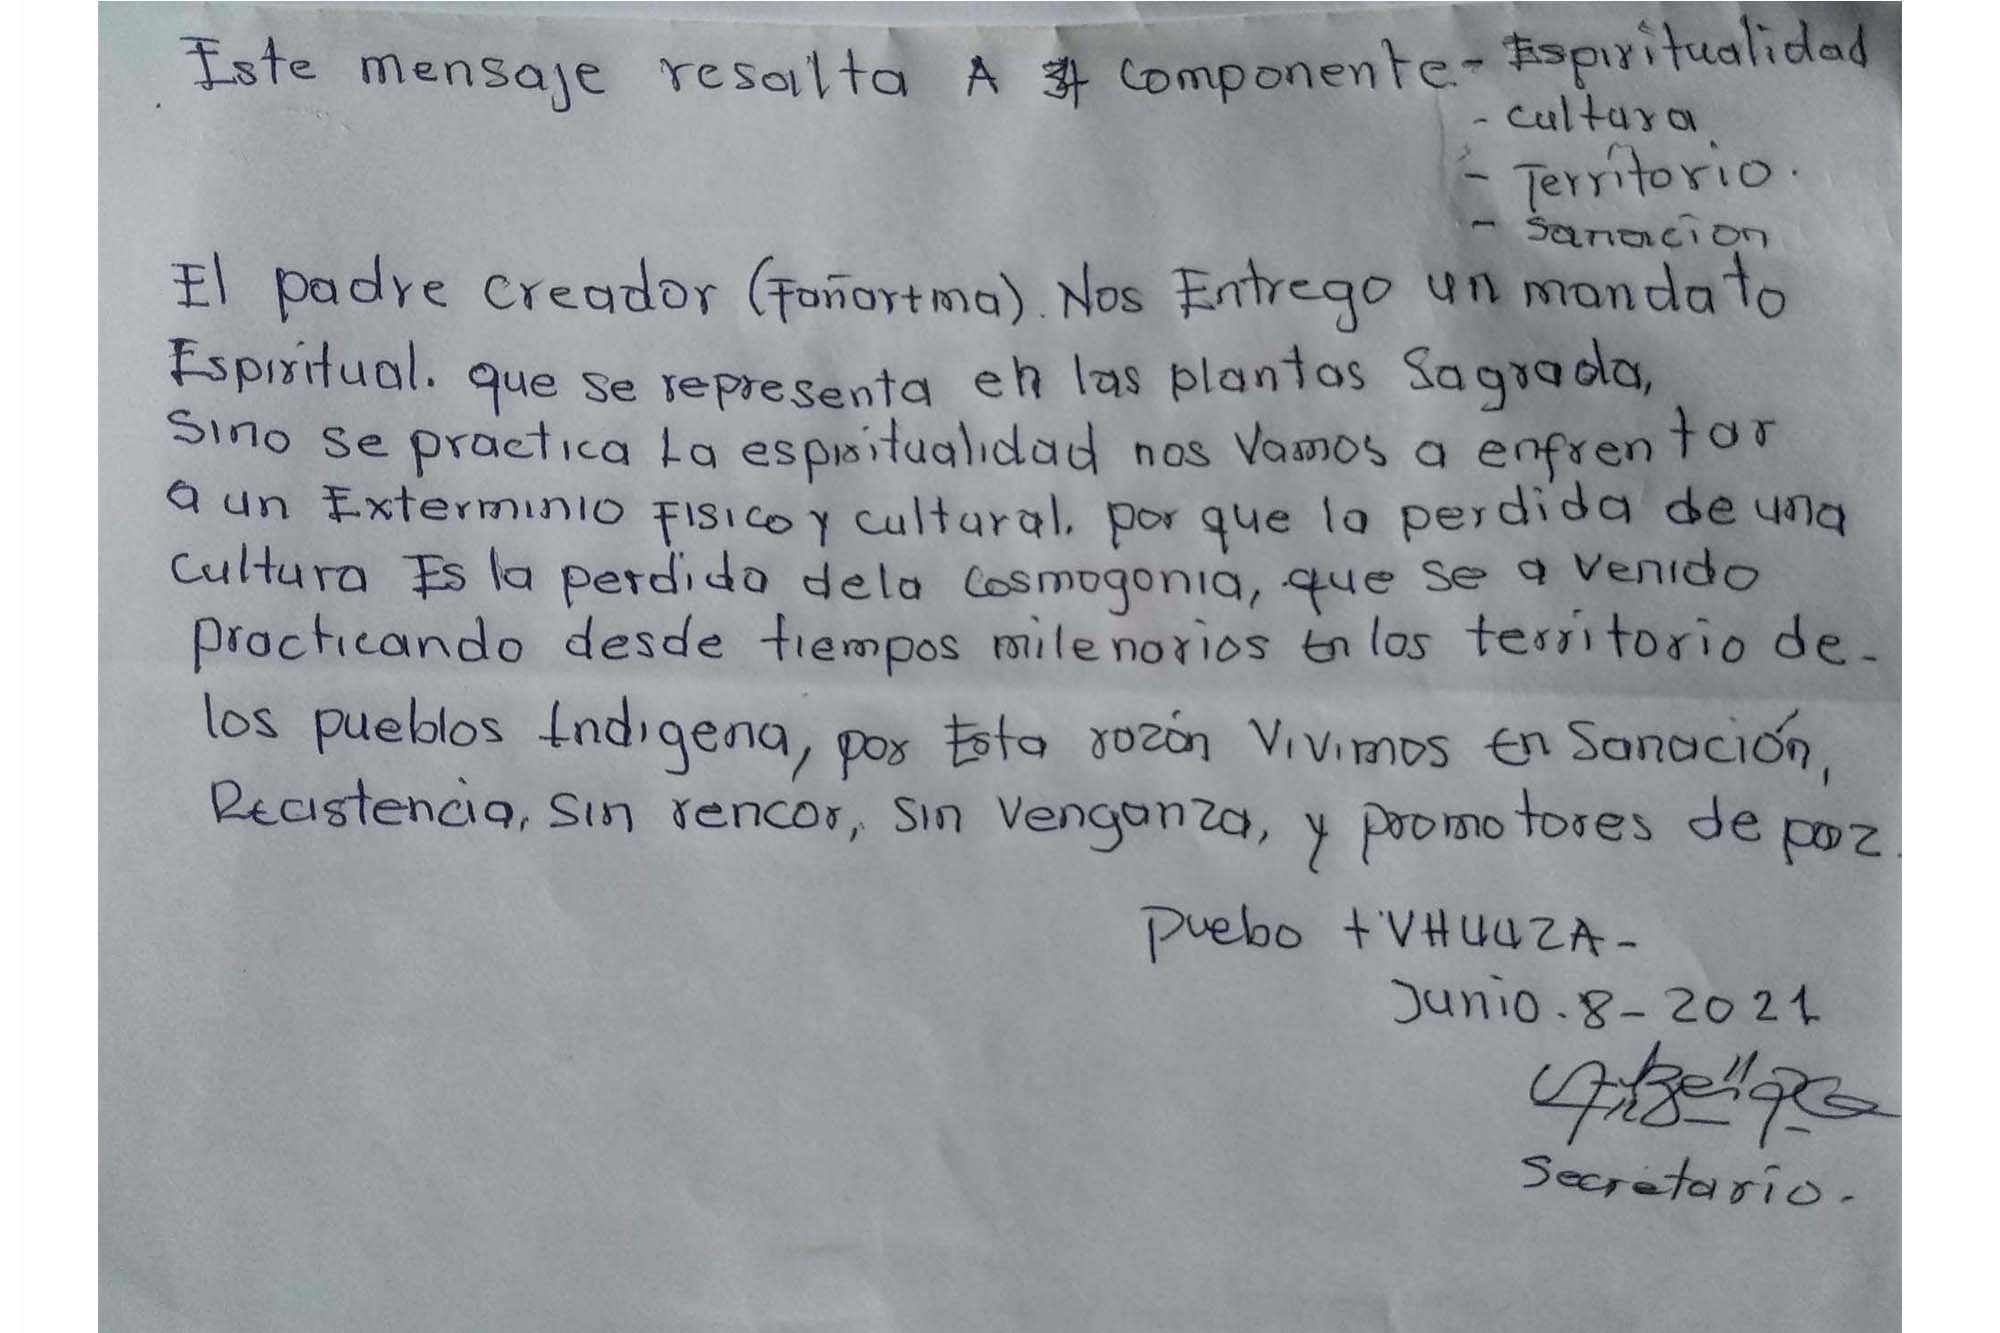 Este mensaje resalta A 4 componente - Espiritualidad
- cultura
- Territorio.
- Sanacion
El padre creador (Foñartma). Nos Entrego un mandato
Espiritual. que se representa en las plantas Sagrada,
Sino se practica la espiritualidad nos vamos a enfrentar
a un Exterminio Fisico y cultural. por que la perdida de una
cultura Es la perdida dela cosmogonia, que se a venido
practicando desde tiempos milenarios en los territorio de-
los pueblos Indigena, por Esta razón vivimos en Sanación,
Recistencia, sin rencor, sin venganza, y promotores de paz.
Puebo +VH44ZA-
Junio.8-2021
Secretario.